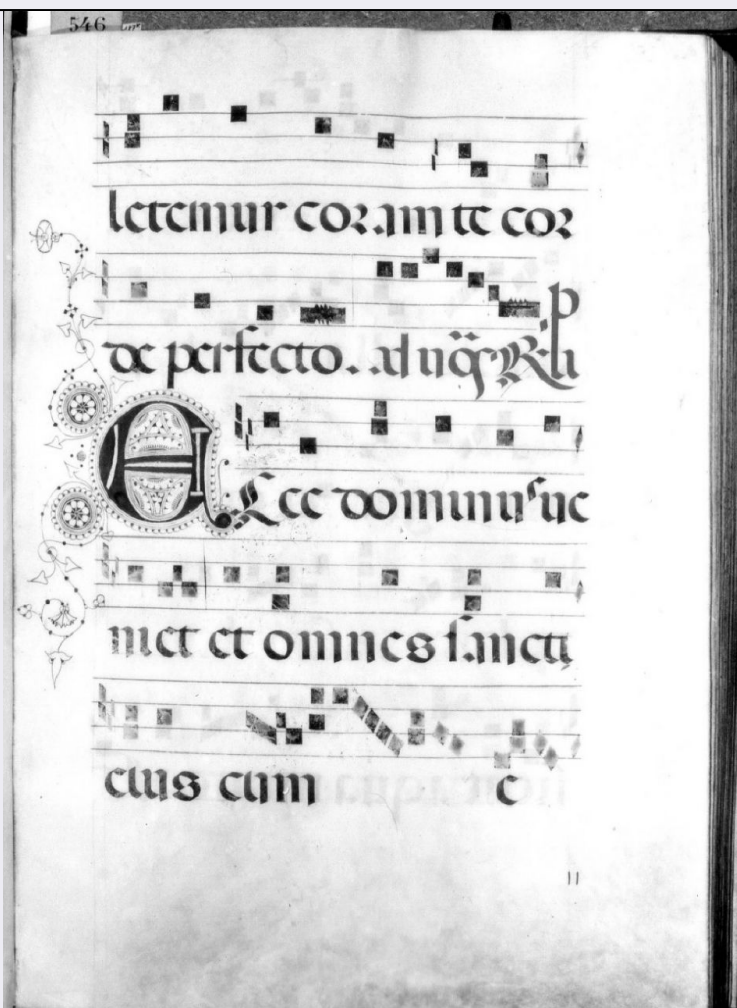 546
letemur coram te cor
de perfecto.
Ecce dominus ue
niet et omnes sancti
eius cum e
11